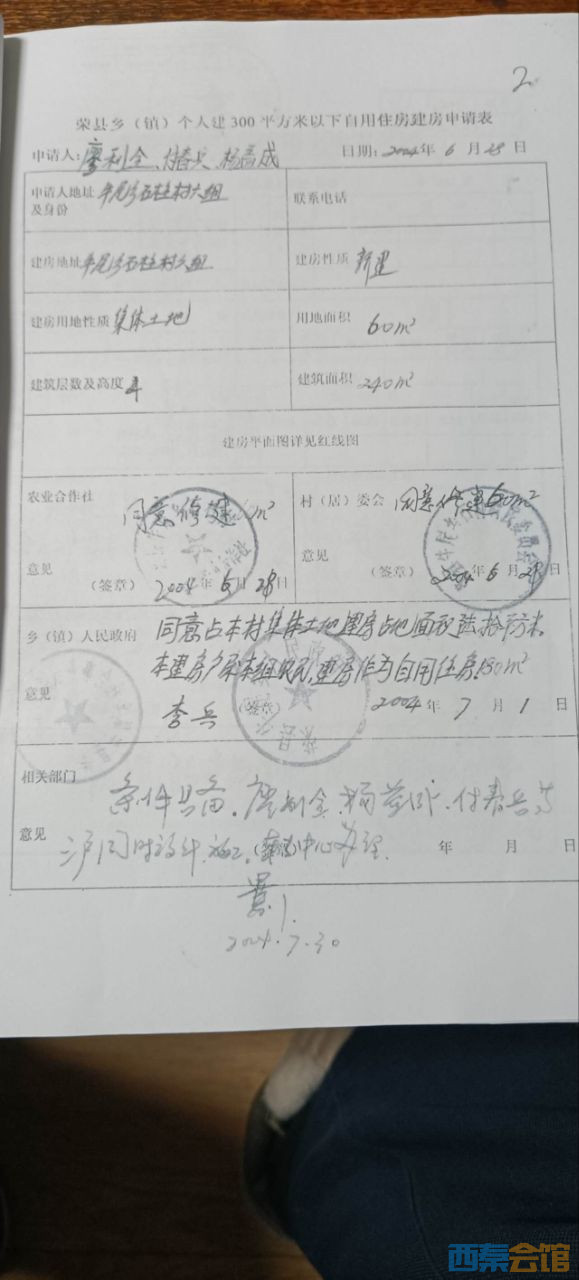 2
荣县乡（镇）个人建300平方米以下自用住房建房申请表
申请人：廖利全、付春兵 杨 成 日期：2004年6月28日
申请人地址及身份 石柱村六组 联系电话
建房地址 石柱村六组 建房性质 新建
建房用地性质 集体土地 用地面积 60m²
建筑层数及高度 4 建筑面积 240m²
建房平面图详见红线图
农业合作社 同意修建 m² 村（居）委会 同意修建60m²
意见 （签章） 2004年6月28日 意见 （签章） 2004年6月28日
乡（镇）人民政府 同意占本村集体土地建房占地面积陆拾平方米。
本建房户属本组农民，建房作为自用住房150m²
意见 李兵 （签章） 2004年7月1日
相关部门 条件具备。廖利全、杨 、付春兵等
意见 三户同时设计、施工。 中心办理. 年 月 日
2004.7.30
西秦会馆